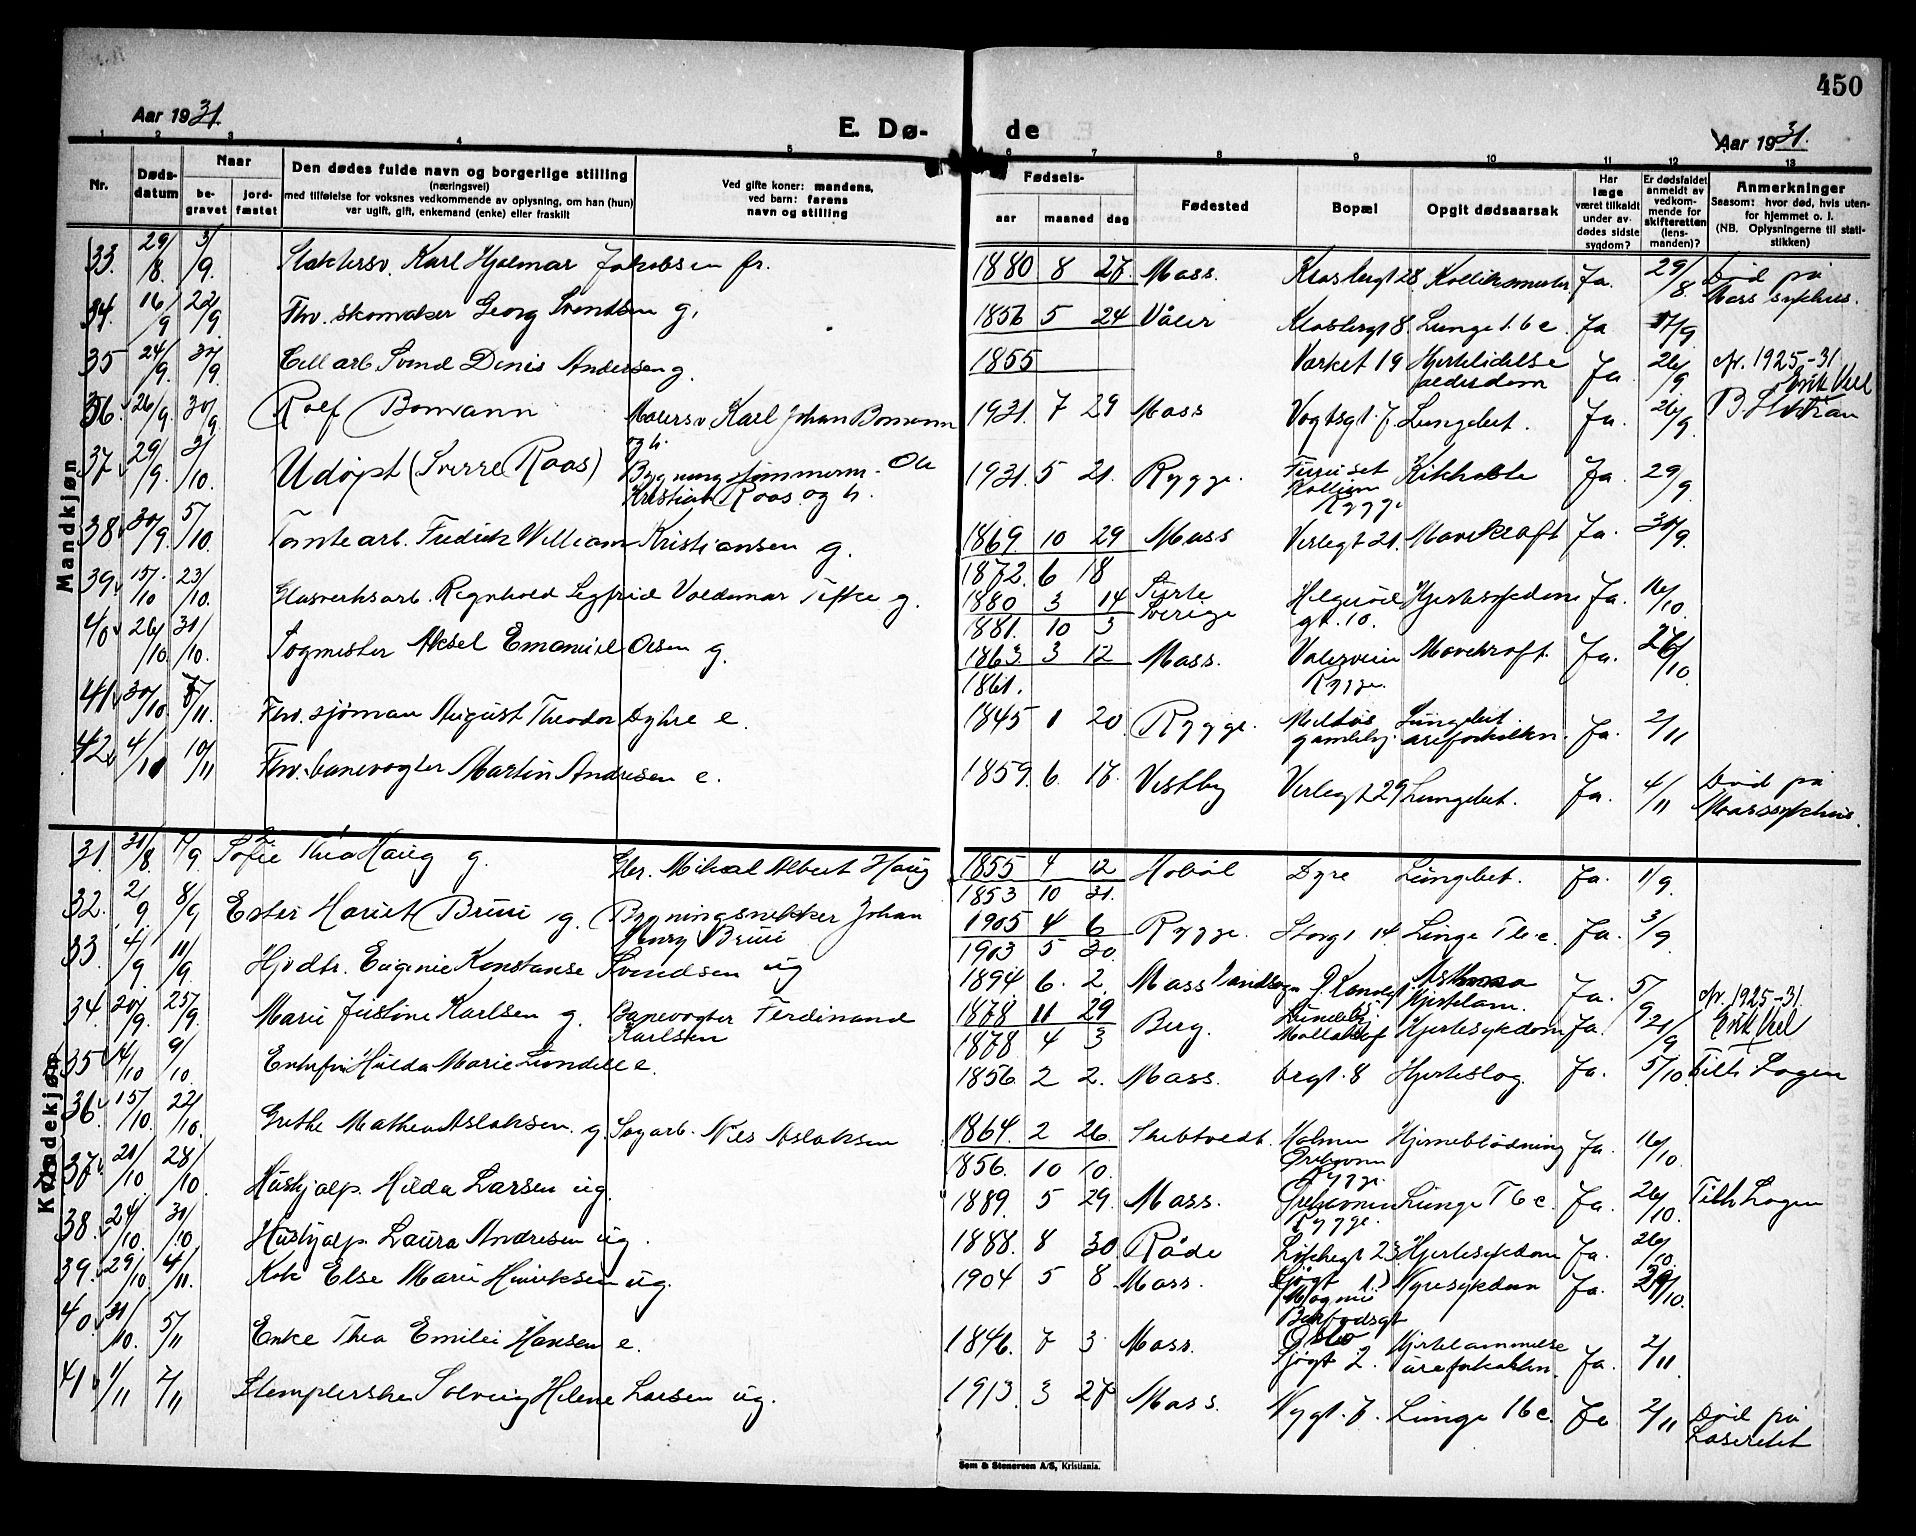 450
Aar 1931.
E. Dø-
de
Aar 1931.
1 2 3 4 5 6 7 8 9 10 11 12 13
Nr.
Døds-
datum
Naar
be-
gravet
jord-
fæstet
Den dødes fulde navn og borgerlige stilling
(næringsvei)
med tilføielse for voksnes vedkommende av oplysning, om han (hun)
var ugift, gift, enkemand (enke) eller fraskilt
Ved gifte koner: mandens,
ved barn: farens
navn og stilling
Fødsels-
aar maaned dag
Fødested
Bopæl
Opgit dødsaarsak
Har
læge
været tilkaldt
under av-
dødes sidste
sygdom?
Er dødsfaldet
anmeldt av
vedkom-
mende for
skifteretten
(lens-
manden)?
Anmerkninger
Seasom: hvor død, hvis uten-
for hjemmet o. l.
(NB. Oplysningerne til stati-
stikken)
Mandkjøn
33. 29/8. 3/9. Slaktersv. Karl Hjalmar Jakobsen fr. 1880 8 27. Moss. Ja. 29/8. Død på
Moss sykhus.
34. 16/9 22/9 Fhv. skomaker Georg Svendsen g. 1856 5 24 Våler 8. Lunge t.b.c. Ja 17/9
35 24/9. 30/9. Cell arb. Svend Denis Andersen g. 1855 Værket 19 Hjertelidelse
alderdom Ja. 26/9 Nr. 1925-31
36. 26/9. 30/9. Rolf Bomann Malersv Karl Johan Bomann
og h. 1931. 7 29 Moss Vogtsgt. 7. Lungebet. Ja. 26/9.
37 29/9. 3/10. Udøpt (Sverre Roos) Bygningstømmerm. Ole
Kristian Roos og h. 1931. 5 21. Rygge.
Rygge Kikhoste Ja. 29/9.
38 30/9. 5/10. Tomtearb. Fredrik William Kristiansen g. 1869. 10 29 Moss Verlegt 21. Mavekræft Ja. 30/9.
1872. 6 18
39. 15/10 23/10. Glasverksarb. Reynhold Segfrid Valdemar Tifke g. 1880 3 14
Sverige
gt. 10. Hjertesykdom Ja. 16/10.
1881. 10 3
40 26/10. 31/10. Togmester Aksel Emanuel Olsen g. 1863. 3 12 Moss. Vålerveien
Rygge. Mavekræft. Ja. 27/10
1861.
41 30/10. 5/11. Fhv. sjømann August Theodor Dyhre e. 1845 1 20. Rygge. Lungebet.
åreforkalkn. Ja. 2/11
42. 4/11 10/11 Fhv. banevogter Martin Andresen e. 1859. 6. 17. Vestby Verlegt 29 Lungebet. Ja. 4/11 Død på
Moss sykhus.
Kvindekjøn
31. 31/8. 4/9. Sofie Thea Haug g. Mikael Albert Haug 1855 4 12 Hobøl Dyre Lungebet. Ja. 1/9.
1853 10 31.
32. 2/9 8/9 Ester Hariet Bruu g. Bygningsnekker Johan
Henry Bruu 1905 4 6 Rygge. Storgt 14 Lunge Tbc. Ja. 3/9
1903 5 30.
33. 4/9. 11/9. Hjvdtr. Eugenie Konstanse Svendsen ug 1894 6. 2. Moss landsogn Asthma
Hjertelam. Ja. 5/9
34. 20/9. 25/9. Marie Justine Karlsen g. Banevogter Ferdinand
Karlsen 1878. 11 29 Berg. Hjertesykdom Ja. 21/9 Nr. 1925-31.
1878 4 3
35 4/10 9/10 Enkefru Hulda Marie Lundell e. 1856 2 2. Moss. 8 Hjerteslag. Ja. 5/10.
36. 15/10. 22/10. Grethe Mathea Aslaksen. g. Sagarb. Nils Aslaksen 1864. 2 26. Skibtvedt. Holmen
Rygge. Hjerneblødning Ja. 16/10.
1856. 10 10.
37. 21/10 28/10. Hushjelp. Hilda Larsen ug. 1889. 5 29. Moss.
Rygge. Lunge Tbc Ja. 26/10.
38. 24/10. 31/10 Hushjelp Laura Andresen ug. 1888. 8 30 Råde 23 Hjertesykdom Ja. 26/10.
39. 29/10 4/11. Kok Else Marie Henriksen ug. 1904 5 8 Moss. Sjøgt 1.)
Oslo Nyresykdom Ja. 29/10.
40. 31/10. 5/11 Enke Thea Emilie Hansen e. 1846. 7 3 Moss. Sjøgt 2. Hjertelammelse
åreforkalkn. Ja. 2/11.
41 1/11 7/11 Stemplerske Solveig Helene Larsen ug. 1913. 3 27 Moss. Nygt. 7. Lunge tbc. Ja 2/11 Død på
Lasarettet
Søm & Stenersen A/S, Kristiania.